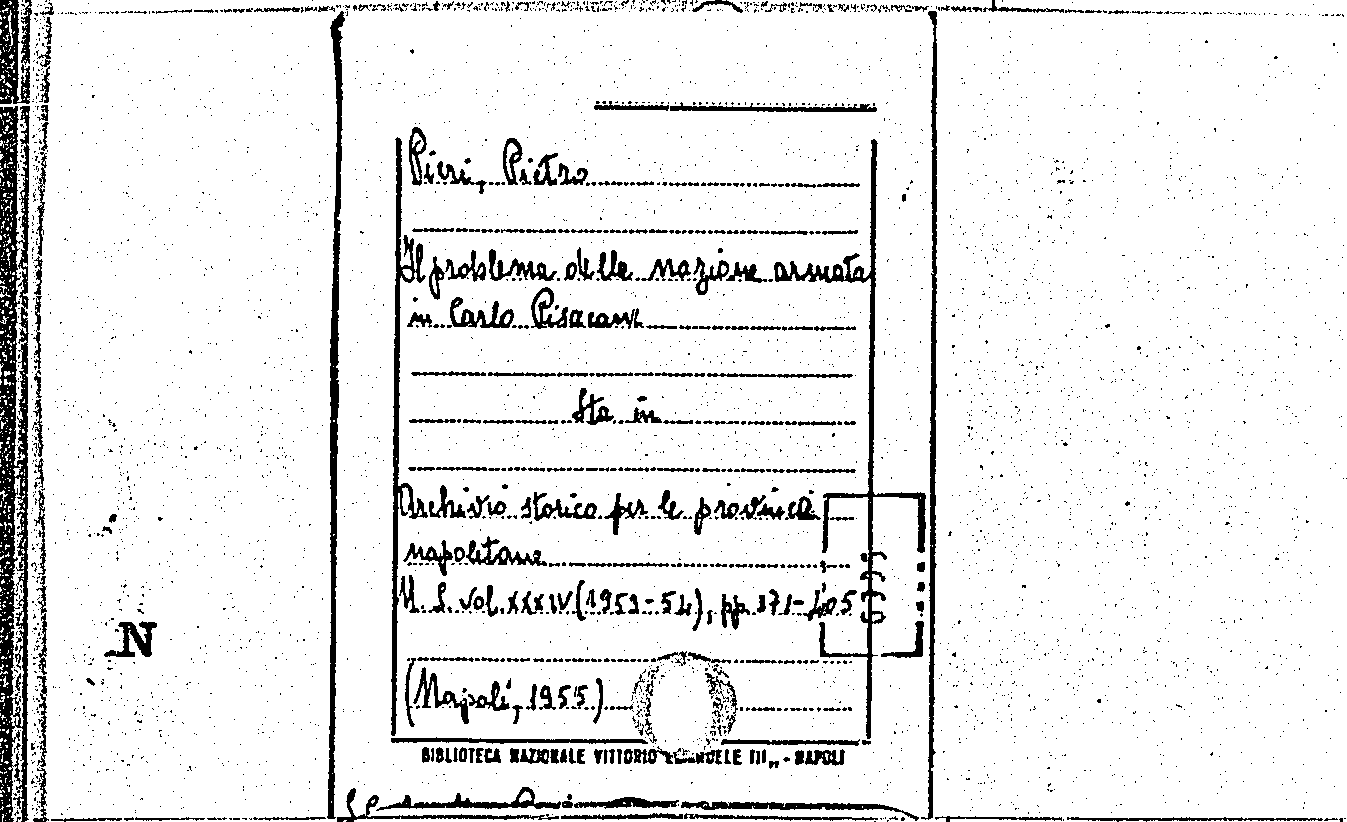 Pieri, Pietro
Il problema della nazione armata
in Carlo Pisacane
Sta in
Archivio storico per le provincie
napoletane
N. S. vol. XXXIV (1953-54), pp. 371-405
(Napoli, 1955)
N
BIBLIOTECA NAZIONALE VITTORIO EMANUELE III„ - NAPOLI